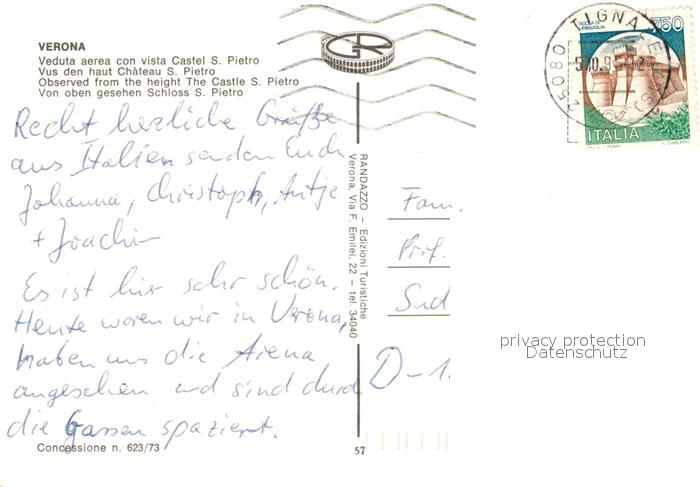 VERONA
Veduta aerea con vista Castel S. Pietro
Vus den haut Château S. Pietro
Observed from the height The Castle S. Pietro
Von oben gesehen Schloss S. Pietro
Recht herzliche Grüße
aus Italien senden Euch
Johanna, Christoph, Antje
+ Joachim
Es ist hier sehr schön.
Heute waren wir in Verona,
haben uns die Arena
angesehen und sind durch
die Gassen spaziert.
Concessione n. 623/73
RANDAZZO – Edizioni Turistiche
Verona, Via F. Emilei, 22 – tel. 34040
57
GR
25080 TIGNALE
750
ITALIA
Fam.
Prof.
Süd
D-1.
privacy protection
Datenschutz